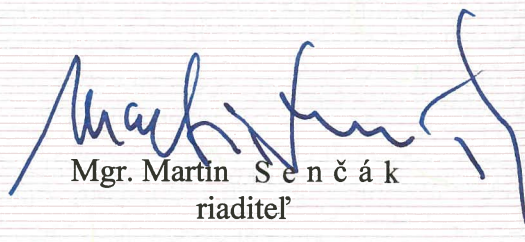 Mgr. Martin S e n č á k
riaditeľ